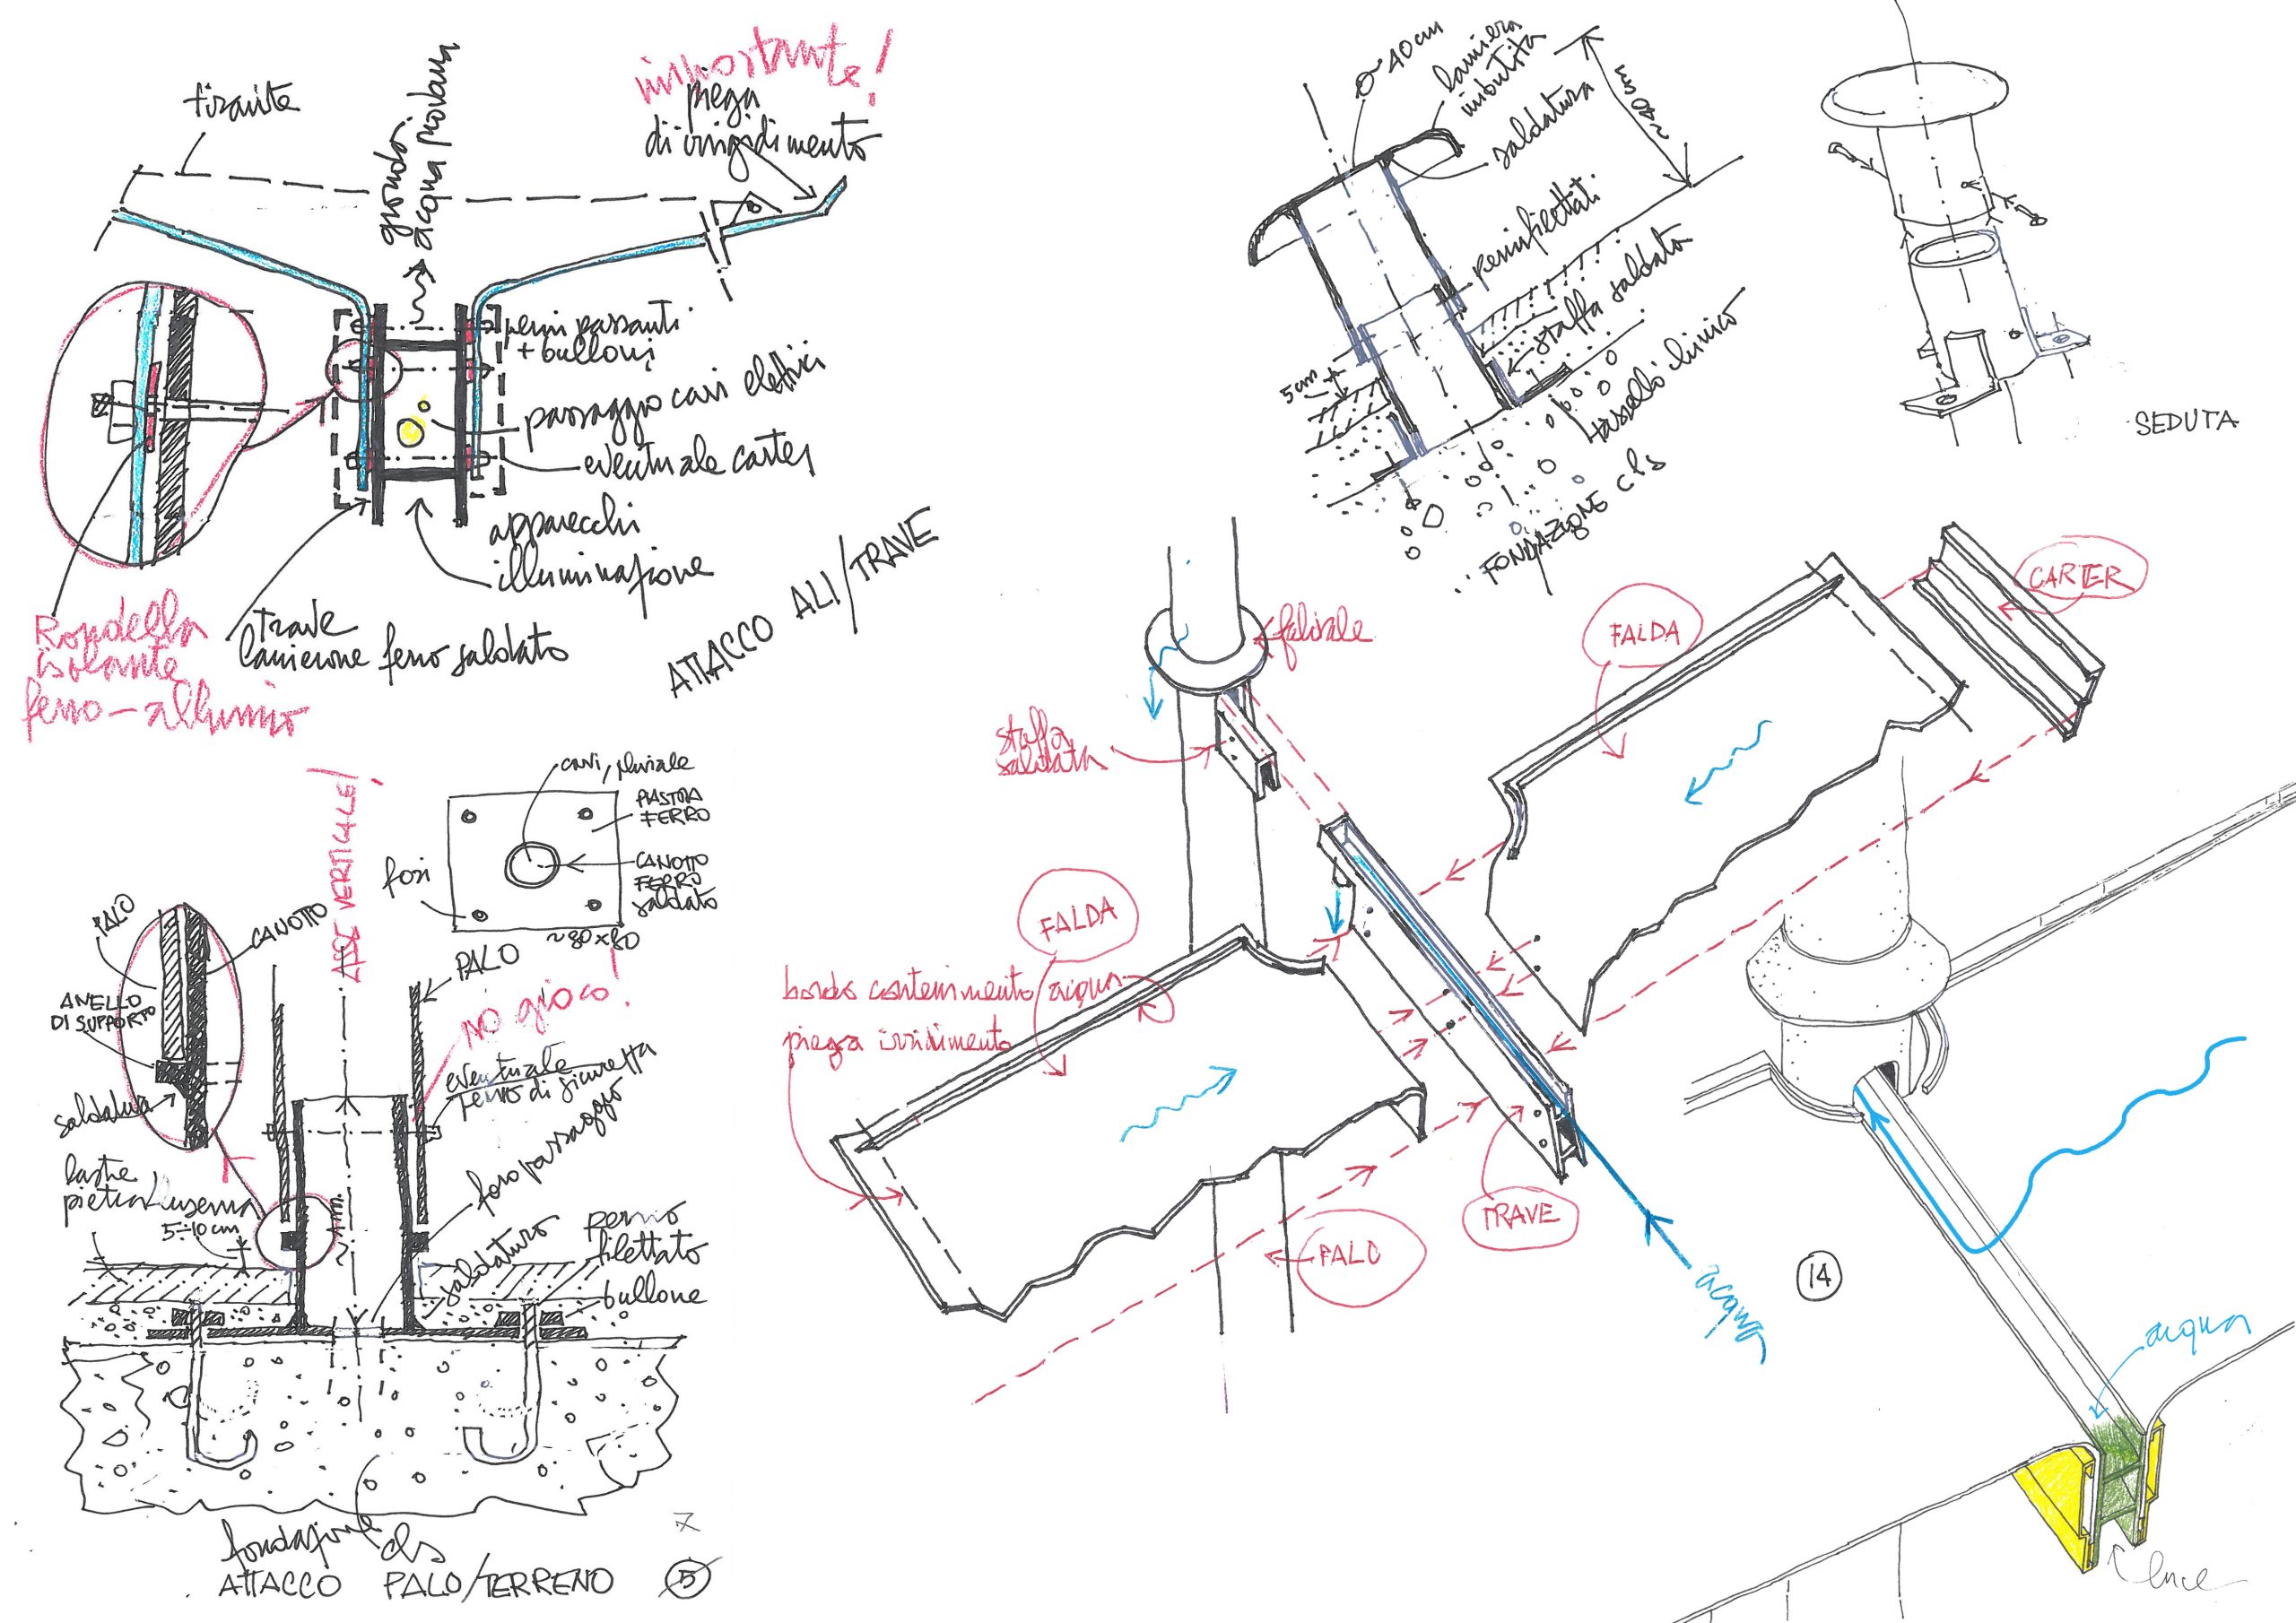 importante!
tirante
gronda
acqua piovana
piega
di irrigidimento
perni passanti
+ bulloni
passaggio cavi elettrici
eventuale carter
apparecchi
illuminazione
trave
lamierone ferro saldato
Rondella
isolante
ferro-allumio
ATTACCO ALI/TRAVE
ø~40cm
lamiera
imbutita
saldatura
~40cm
perni filettati
staffa saldata
5cm
tasselli
FONDAZIONE cls
SEDUTA
CARTER
FALDA
staffa
saldata
FALDA
bordo contenimento acqua
piega
TRAVE
PALO
acqua
14
acqua
luce
ASSE VERTICALE!
cavi, pluviale
PIASTRA
FERRO
CANOTTO
FERRO
saldato
fori
~80x80
PALO
CANOTTO
ANELLO
DI SUPPORTO
saldatura
PALO
NO gioco!
eventuale
perno di sicurezza
foro passaggio
lastre
pietra Luserna
5÷10cm
saldatura
perno
filettato
bullone
fondazione cls
ATTACCO PALO/TERRENO
7
5